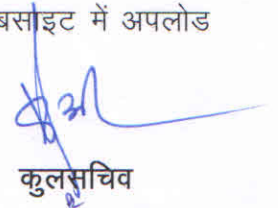 बसाइट में अपलोड
कुलसचिव